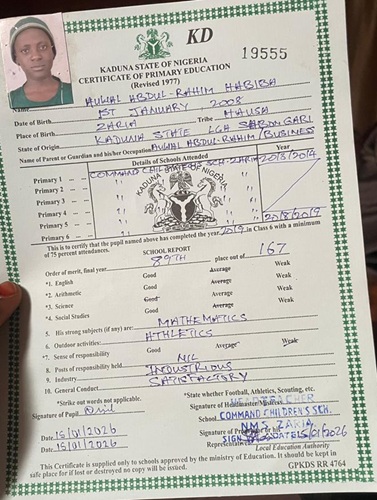 KD
19555
KADUNA STATE OF NIGERIA
CERTIFICATE OF PRIMARY EDUCATION
(Revised 1977)
Name AUWAL ABDUL-RAHIM HABIBA
Date of Birth 1ST JANUARY, 2008
Place of Birth ZARIA Tribe HAUSA
State of Origin KADUNA STATE LGA SABON GARI
Name of Parent or Guardian and his Occupation AUWAL ABDUL-RAHIM/BUSINESS
Details of Schools Attended Year
Primary 1 COMMAND CHILDREN SCH. ZARIA 2013/2014
Primary 2 " " " "
Primary 3 " " " "
Primary 4 " " " "
Primary 5 " " " "
Primary 6 " " " " 2018/2019
KADUNA STATE OF NIGERIA
This is to certify that the pupil named above has completed the year 2019 in Class 6 with a minimum
of 75 percent attendances.
SCHOOL REPORT
Order of merit, final year 89TH place out of 167
*1. English Good Average Weak
*2. Arithmetic Good Average Weak
*3. Science Good Average Weak
*4. Social Studies Good Average Weak
5. His strong subjects (if any) are: MATHEMATICS
6. Outdoor activities: ATHLETICS
*7. Sense of responsibility Good Average Weak
8. Posts of responsibility held NIL
9. Industry INDUSTRIOUS
10. General Conduct SATISFACTORY
*Strike out words not applicable. *State whether Football, Athletics, Scouting, etc.
Signature of Pupil
Signature of Headmaster/Mistress
HEADTEACHER
School COMMAND CHILDREN'S SCH.
N.M.S. ZARIA
Date 15/01/2026
SIGN DATE 15/01/2026
Date 15/01/2026
Local Education Authority
This Certificate is supplied only to schools approved by the ministry of Education. It should be kept in
safe place for if lost or destroyed no copy will be issued.
GPKDS RR 4764